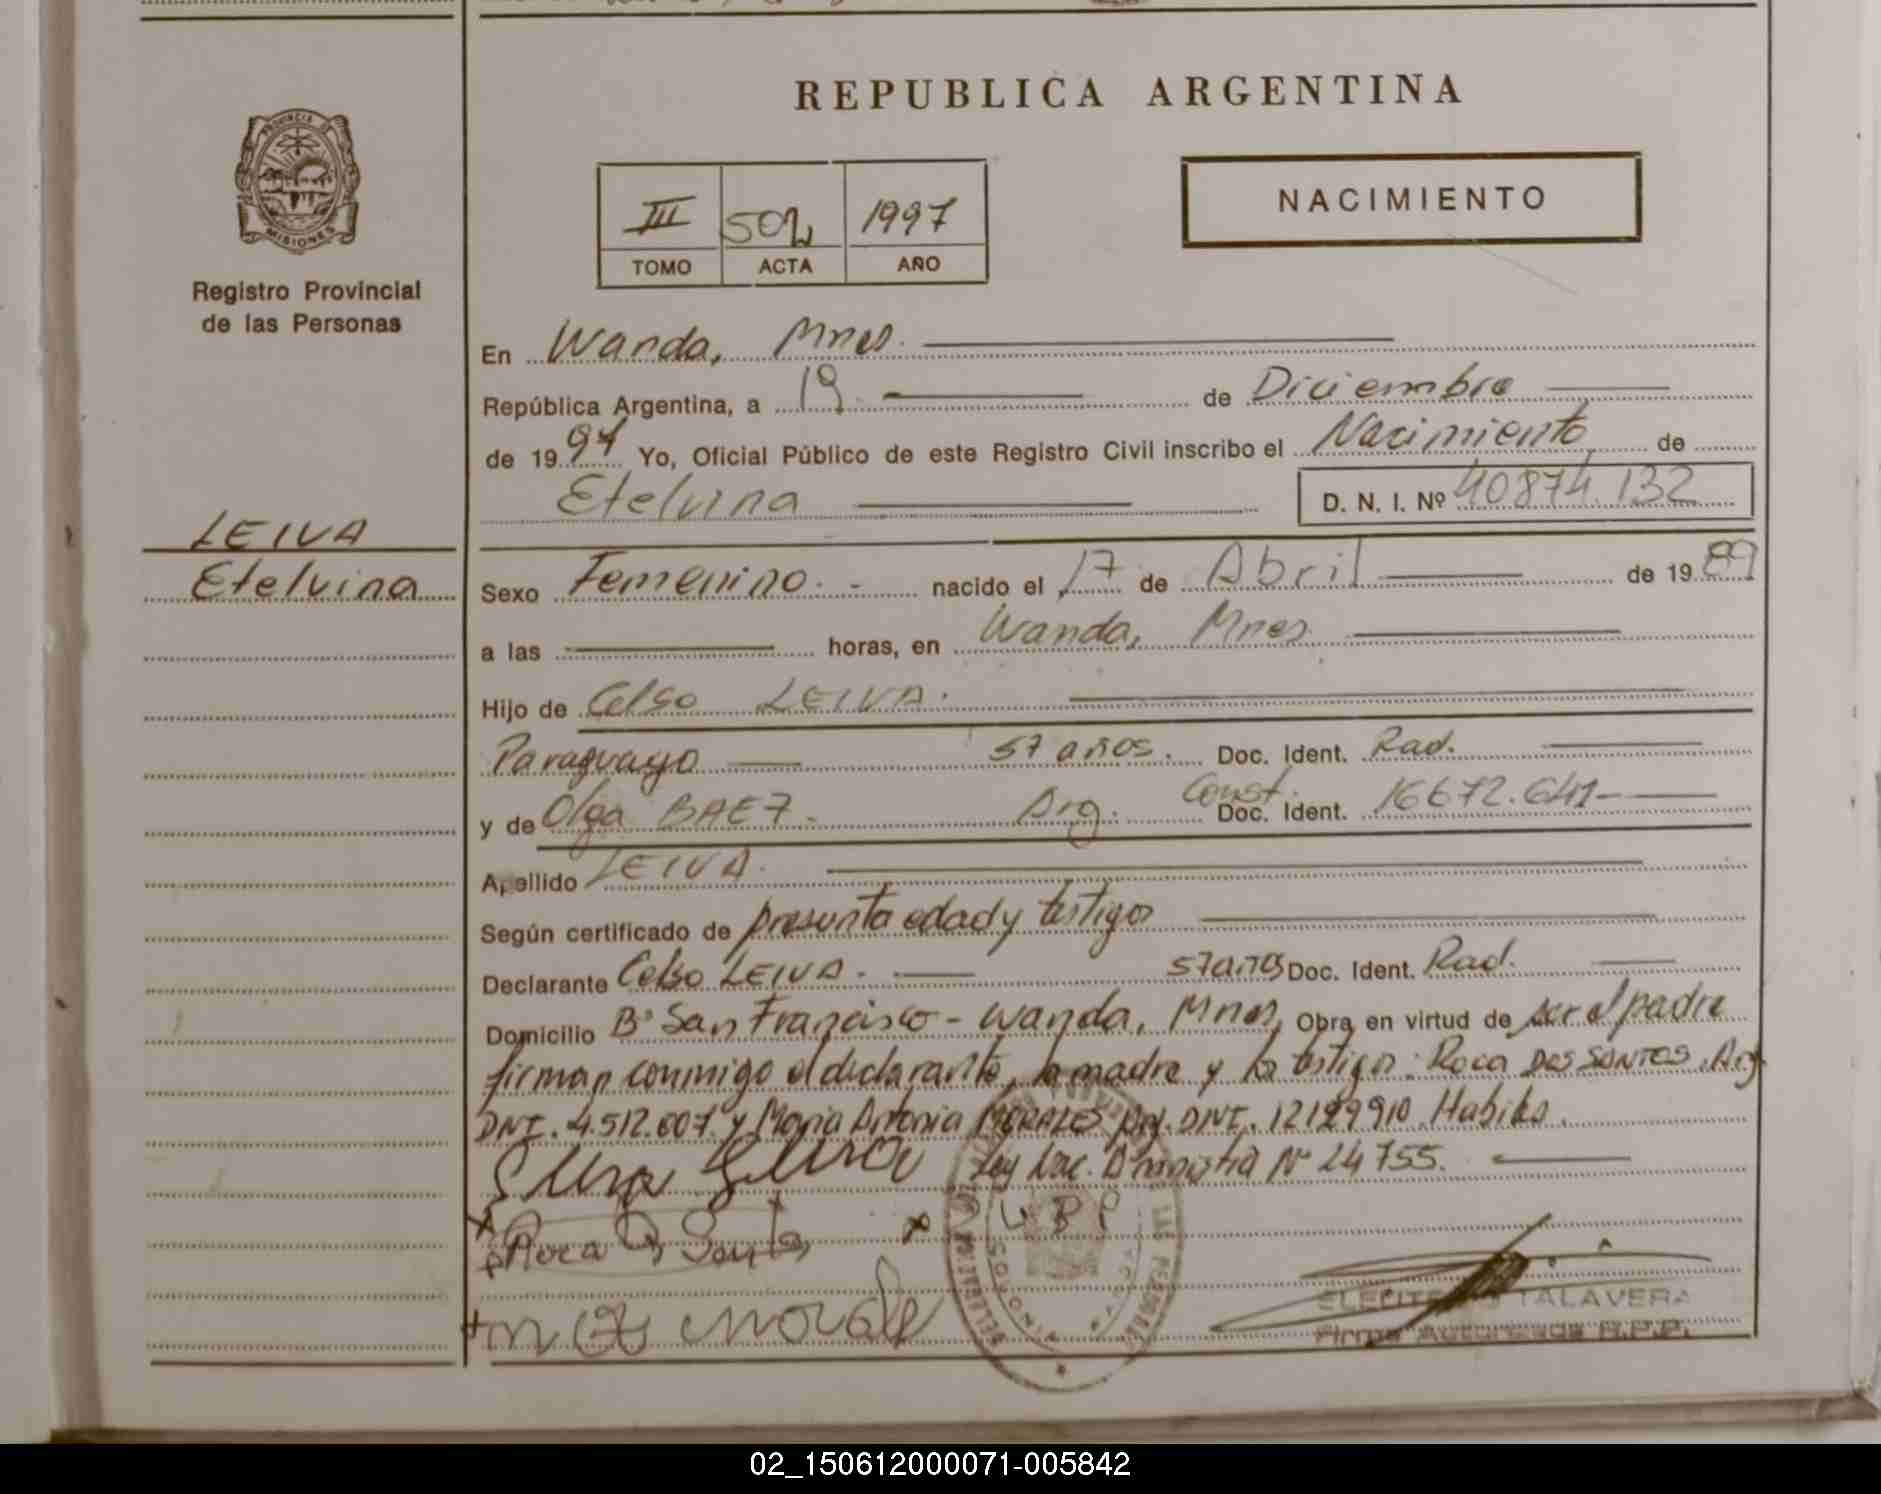 REPUBLICA ARGENTINA
PROVINCIA DE
MISIONES
Registro Provincial
de las Personas
III 502 1997
TOMO ACTA AÑO
NACIMIENTO
En Wanda, Mnes.
República Argentina, a 19 de Diciembre
de 1997 Yo, Oficial Público de este Registro Civil inscribo el Nacimiento de
Etelvina D. N. I. Nº 40874.132
LEIVA
Etelvina
Sexo Femenino. - nacido el 17 de Abril de 1989
a las horas, en Wanda, Mnes.
Hijo de Celso LEIVA.
Paraguayo 57 años. Doc. Ident. Rad.
y de Olga BAEZ. Arg. Const. Doc. Ident. 16672.641-
Apellido LEIVA.
Según certificado de presunta edad y testigos
Declarante Celso LEIVA. 57 años Doc. Ident. Rad.
Domicilio Bº San Francisco - Wanda, Mnes, Obra en virtud de ser el padre
firman conmigo el declarante, la madre y los testigos: Roca DOS SANTOS. Arg
DNI. 4.512.007. y Maria Antonia MORALES Arg. DNI. 12199910. Habiks.
Ley Nac. Amnistia Nº 24755.
Roca D Santos
TALAVERA
Firma Autorizada R.P.P.
02_150612000071-005842